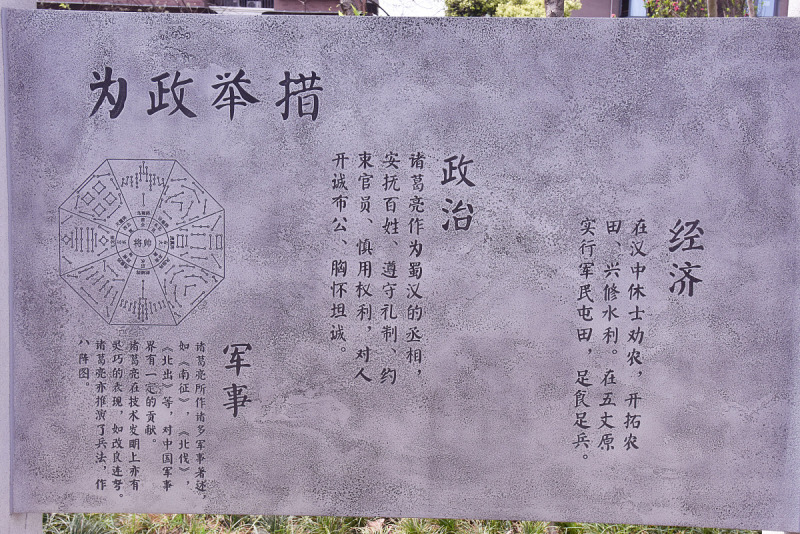 为政举措
经济
在汉中休士劝农，开拓农
田、兴修水利。在五丈原
实行军民屯田，足食足兵。
政治
诸葛亮作为蜀汉的丞相，
安抚百姓、遵守礼制、约
束官员、慎用权利，对人
开诚布公、胸怀坦诚。
军事
诸葛亮所作诸多军事著述，
如《南征》，《北伐》，
《北出》等，对中国军事
界有一定的贡献。
诸葛亮在技术发明上亦有
灵巧的表现，如改良连弩。
诸葛亮亦推演了兵法，作
八阵图。
将帅